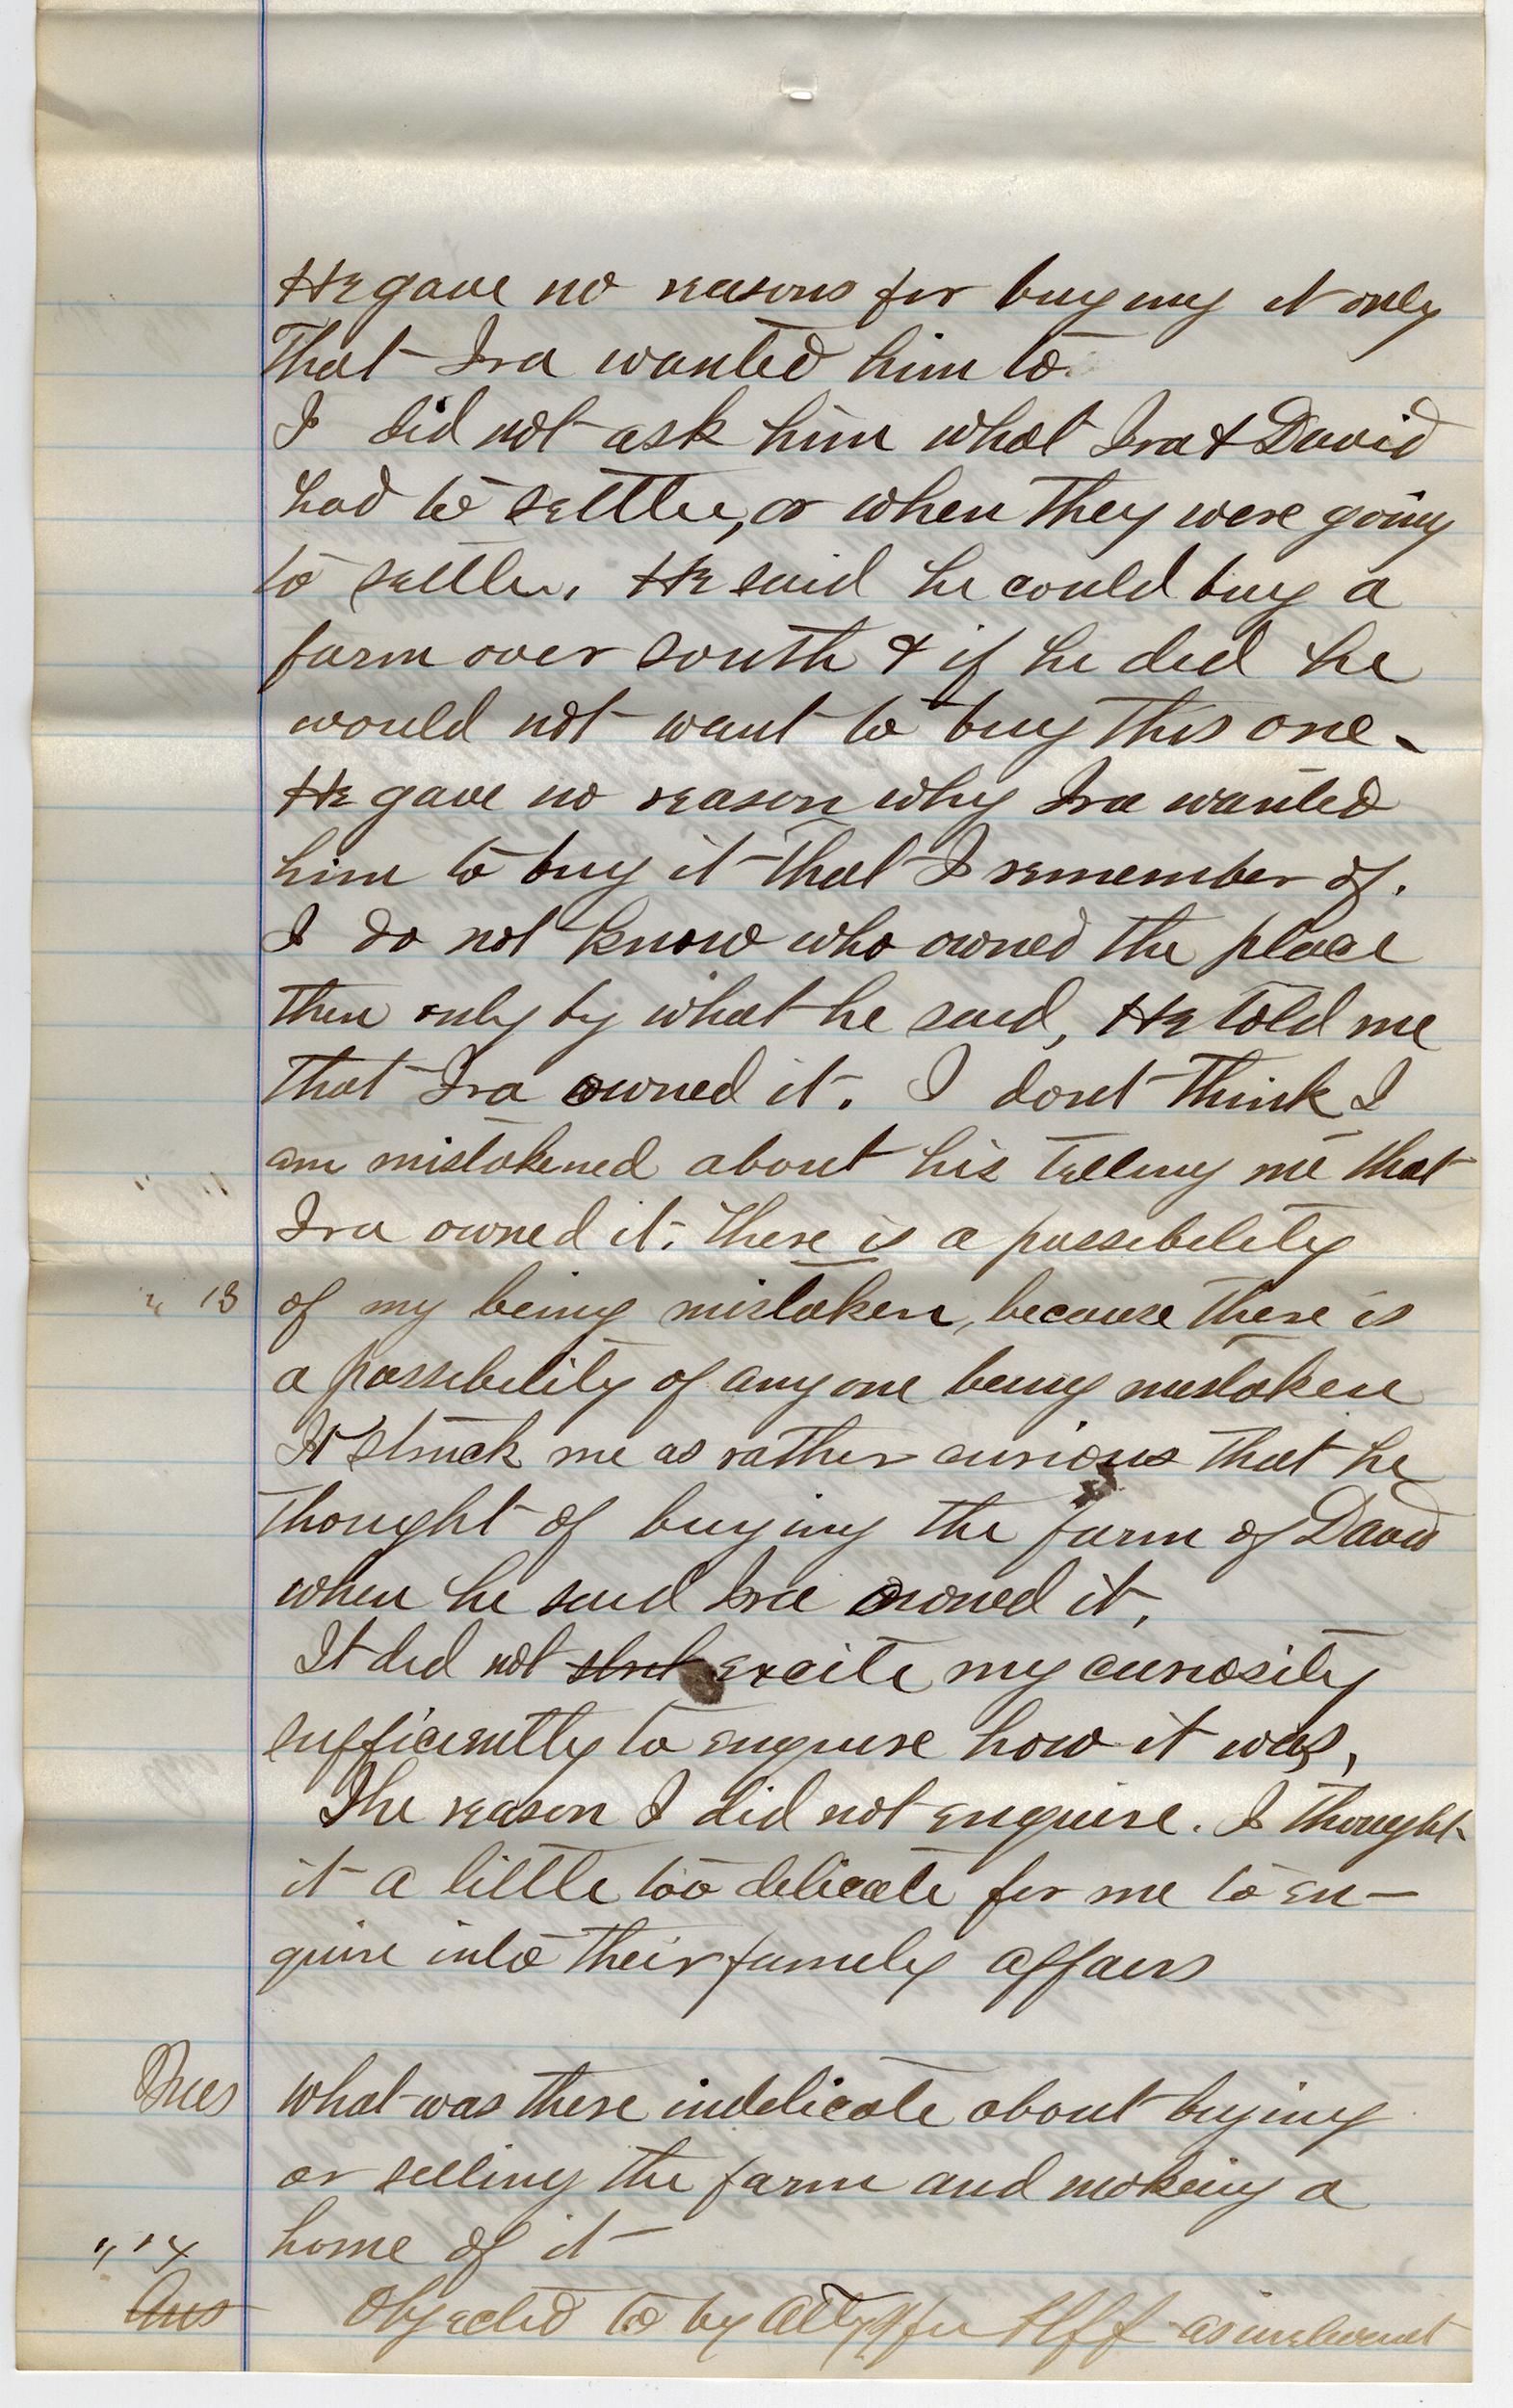 He gave no reasons for buying it only
That Ira wanted him to.
I did not ask him what Ira & David
had to settle, or when they were going
to settle. He said he could buy a
farm over south & if he did he
would not want to buy this one.
He gave no reason why Ira wanted
him to buy it that I remember of.
I do not know who owned the place
then only by what he said, He told me
that Ira owned it. I dont think I
am mistakened about his telling me that
Ira owned it. There is a possibility
" 13 of my being mistaken, because there is
a possibility of any one being mistaken
It struck me as rather curious that he
thought of buying the farm of David
when he said Ira owned it.
It did not excite my curiosity
sufficiently to enquire how it was,
The reason I did not enquire. I thought
it a little too delicate for me to en-
quire into their family affairs
Ques What was there indelicate about buying
or selling the farm and makeing a
" 14 home of it
Ans Objected to by Atty for Plff as irrelevant